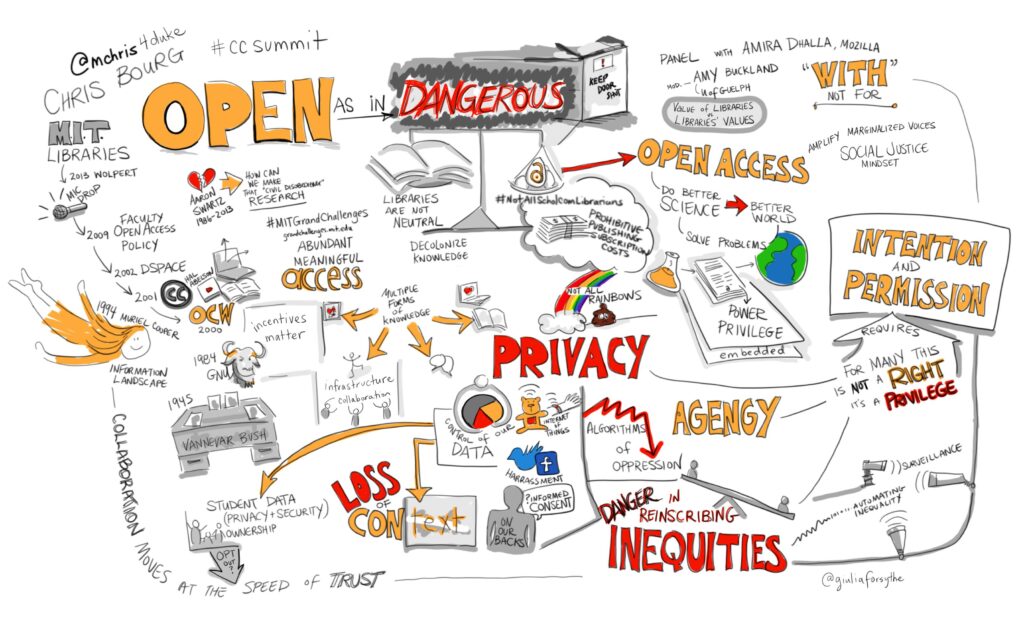 @mchris4duke
CHRIS BOURG
#ccsummit
M.I.T.
LIBRARIES
2013 WOLPERT
MIC
DROP
2009 FACULTY
OPEN ACCESS
POLICY
2002 DSPACE
2001
CC
HAL ABELSON
OCW
2000
1994 MURIEL COOPER
INFORMATION
LANDSCAPE
1984
GNU
1945
VANNEVAR BUSH
OPEN
AS IN
DANGEROUS
KEEP
DOOR
SHUT
AARON
SWARTZ
1986-2013
HOW CAN
WE MAKE
THAT "CIVIL DISOBEDIENT"
RESEARCH
#MITGrandChallenges
grandchallenges.mit.edu
ABUNDANT
MEANINGFUL
access
LIBRARIES
ARE NOT
NEUTRAL
DECOLONIZE
KNOWLEDGE
incentives
matter
MULTIPLE
FORMS
OF
KNOWLEDGE
infrastructure
collaboration
PANEL WITH AMIRA DHALLA, MOZILLA
MOD. AMY BUCKLAND
UofGUELPH
VALUE OF LIBRARIES
vs.
LIBRARIES' VALUES
"WITH"
NOT FOR
AMPLIFY MARGINALIZED VOICES
SOCIAL JUSTICE
MINDSET
OPEN ACCESS
#NotAllScholComLibrarians
PROHIBITIVE
PUBLISHING
SUBSCRIPTION
COSTS
DO BETTER
SCIENCE
BETTER
WORLD
SOLVE PROBLEMS
NOT ALL
RAINBOWS
POWER
PRIVILEGE
embedded
INTENTION
AND
PERMISSION
REQUIRES
FOR MANY THIS
IS NOT A RIGHT
IT'S A PRIVILEGE
PRIVACY
AGENCY
CONTROL OF OUR
DATA
INTERNET
OF
THINGS
HARRASSMENT
f
?INFORMED
CONSENT
ON
OUR
BACKS
ALGORITHMS
OF
OPPRESSION
LOSS
OF
CONtext
STUDENT DATA
(PRIVACY + SECURITY)
OWNERSHIP
OPT
OUT
?
DANGER IN
REINSCRIBING
INEQUITIES
SURVEILLANCE
AUTOMATING
INEQUALITY
COLLABORATION MOVES AT THE SPEED OF TRUST
@giuliaforsythe